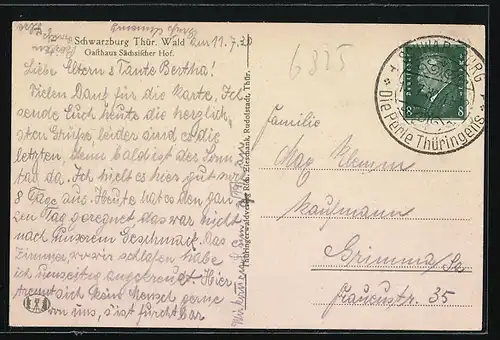 Schwarzburg Thür. Wald den 11.7.30
Gasthaus Sächsischer Hof.
Liebe Eltern u Tante Bertha!
Vielen Dank für die Karte. Ich
sende Euch heute die herzlich
sten Grüße, leider sind es die
letzten, denn bald ist der Sonn
tag da. Ich hielt es hier gut noch
8 Tage aus. Heute hat es den gan
zen Tag geregnet das war nicht
nach unserem Geschmack. Das
Zimmer, wo wir schlafen habe
ich angekreuzt. Hier
trennt sich kein Mensch gerne
von uns, s'ist furchtbar
Thüringerwaldverlag Rich. Zieschank, Rudolstadt, Thür.
6825
SCHWARZBURG
Die Perle Thüringens
8 8
Familie
Max Klemm
Kaufmann
Grimma, Sa
Frauenstr. 35